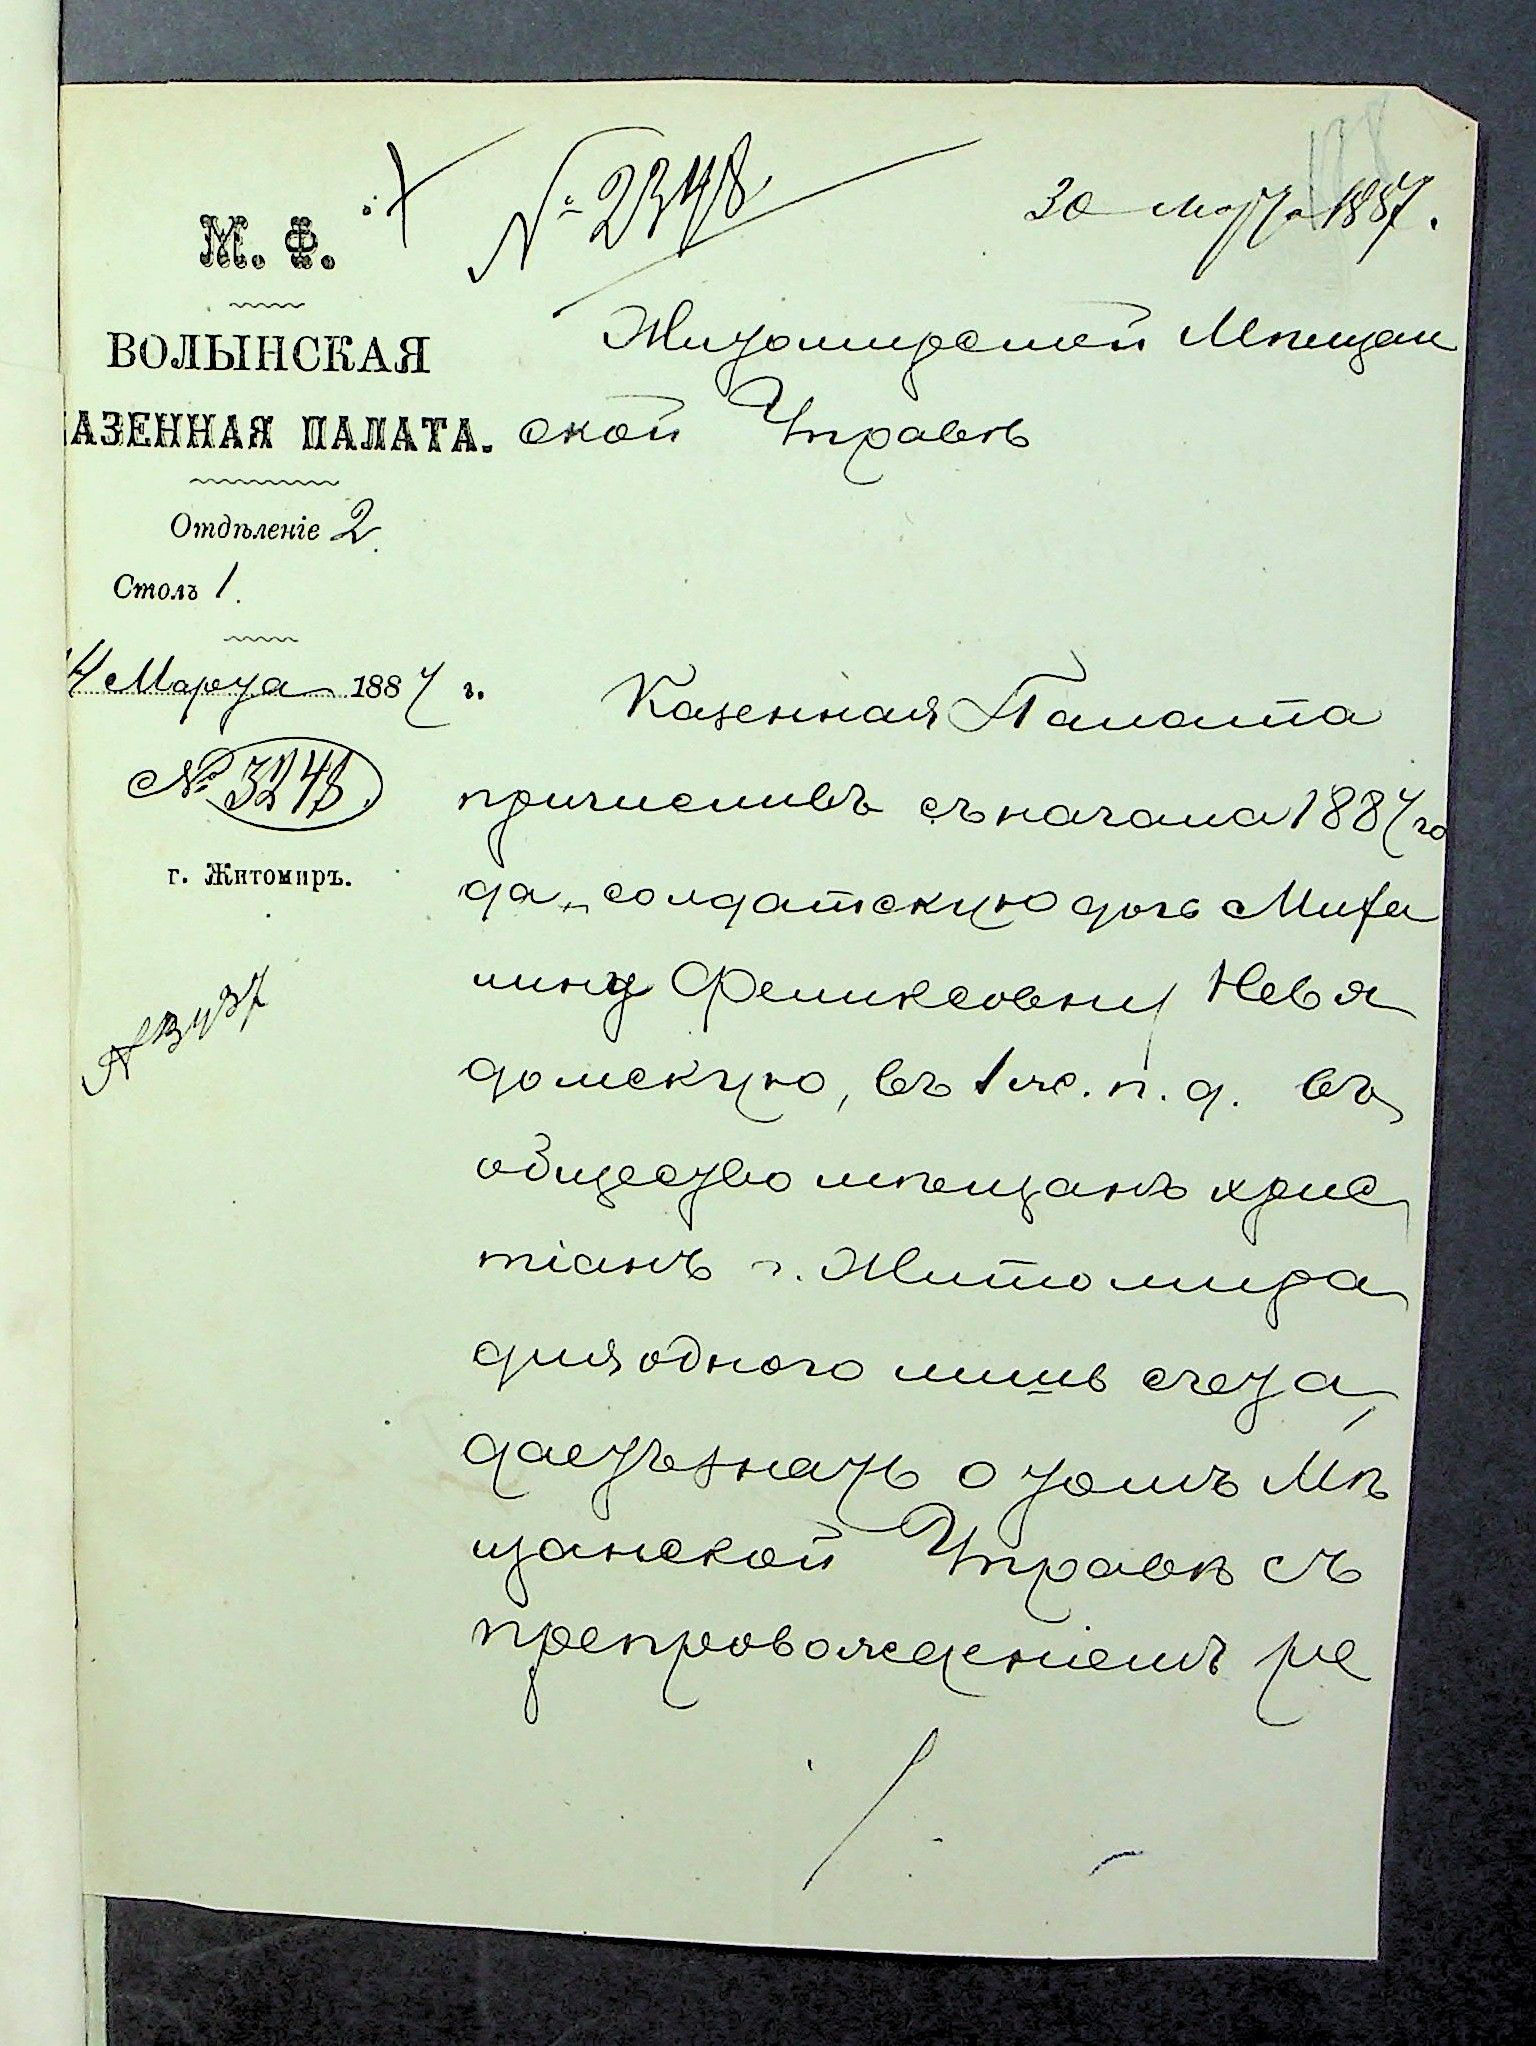 № 2348
30 марта 1887.
М. Ф.
ВОЛЫНСКАЯ
КАЗЕННАЯ ПАЛАТА.
Отдѣленіе 2.
Столъ 1.
14 Марта 1887 г.
№ 3248.
г. Житомиръ.
Житомирской Мѣщан
ской Управѣ
Казенная Палата
причисливъ съ начала 1887 го
да, солдатскую дочь Миха
лину Феликсовну Невя
домскую, въ 1 ж. п. д. въ
общество мѣщанъ хрис
тіанъ г. Житомира
для одного лишь счета,
даетъ знать о томъ Мѣ
щанской Управѣ съ
препровожденіемъ ре